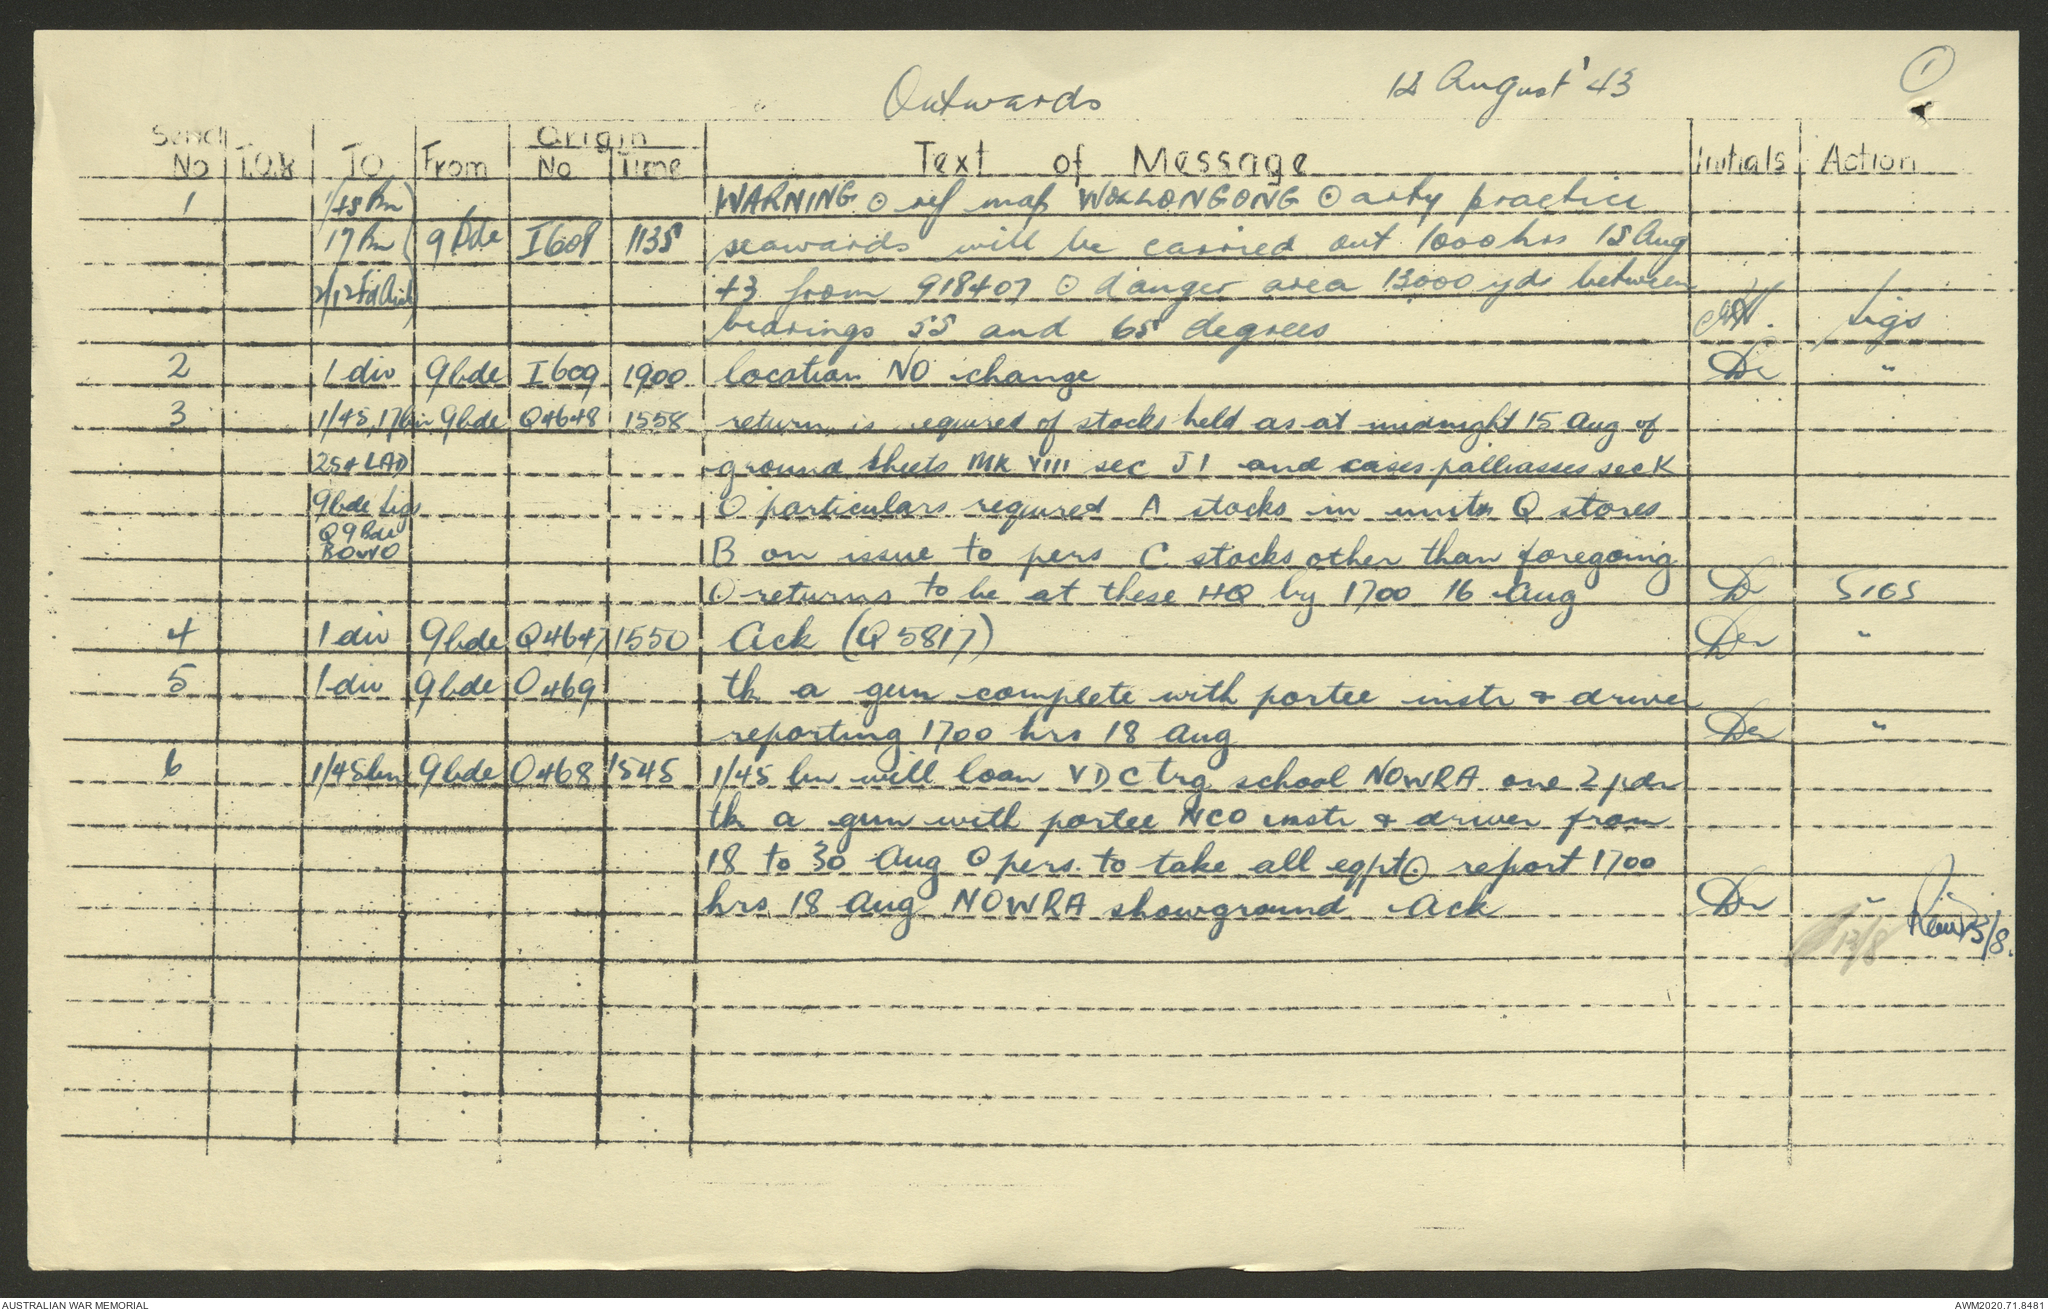 Outwards 12 August '43 1
Serial Origin
No T.O.R TO From No Time Text of Message Initials Action
1 1/45 Bn WARNING ⊙ ref map WOLLONGONG ⊙ arty practice
17 Bn 9 Bde I608 1135 seawards will be carried out 1000 hrs 15 Aug
43 from 918407 ⊙ danger area 13000 yds between
bearings 55 and 65 degrees Sigs
2 1 div 9 bde I609 1900 location NO change "
3 1/45, 17 bn 9 bde Q4648 1558 return is required of stocks held as at midnight 15 Aug of
254 LAD ground sheets MK VIII sec J1 and cases palliasses sec K
9 bde Sigs ⊙ particulars required A stocks in units Q stores
Q 9 Bde
BOWO B on issue to pers C stocks other than foregoing
⊙ returns to be at these HQ by 1700 16 Aug SIGS
4 1 div 9 bde Q4647 1550 Ack (Q 5817) "
5 1 div 9 bde O469 tk a gun complete with portee instr & driver
reporting 1700 hrs 18 Aug "
6 1/45 bn 9 bde O468 1545 1/45 bn will loan VDC trg school NOWRA one 2 pdr
tk a gun with portee NCO instr & driver from
18 to 30 Aug ⊙ pers. to take all eqpt ⊙ report 1700
hrs 18 Aug NOWRA showground Ack "
13/8 13/8.
AUSTRALIAN WAR MEMORIAL AWM2020.71.8481